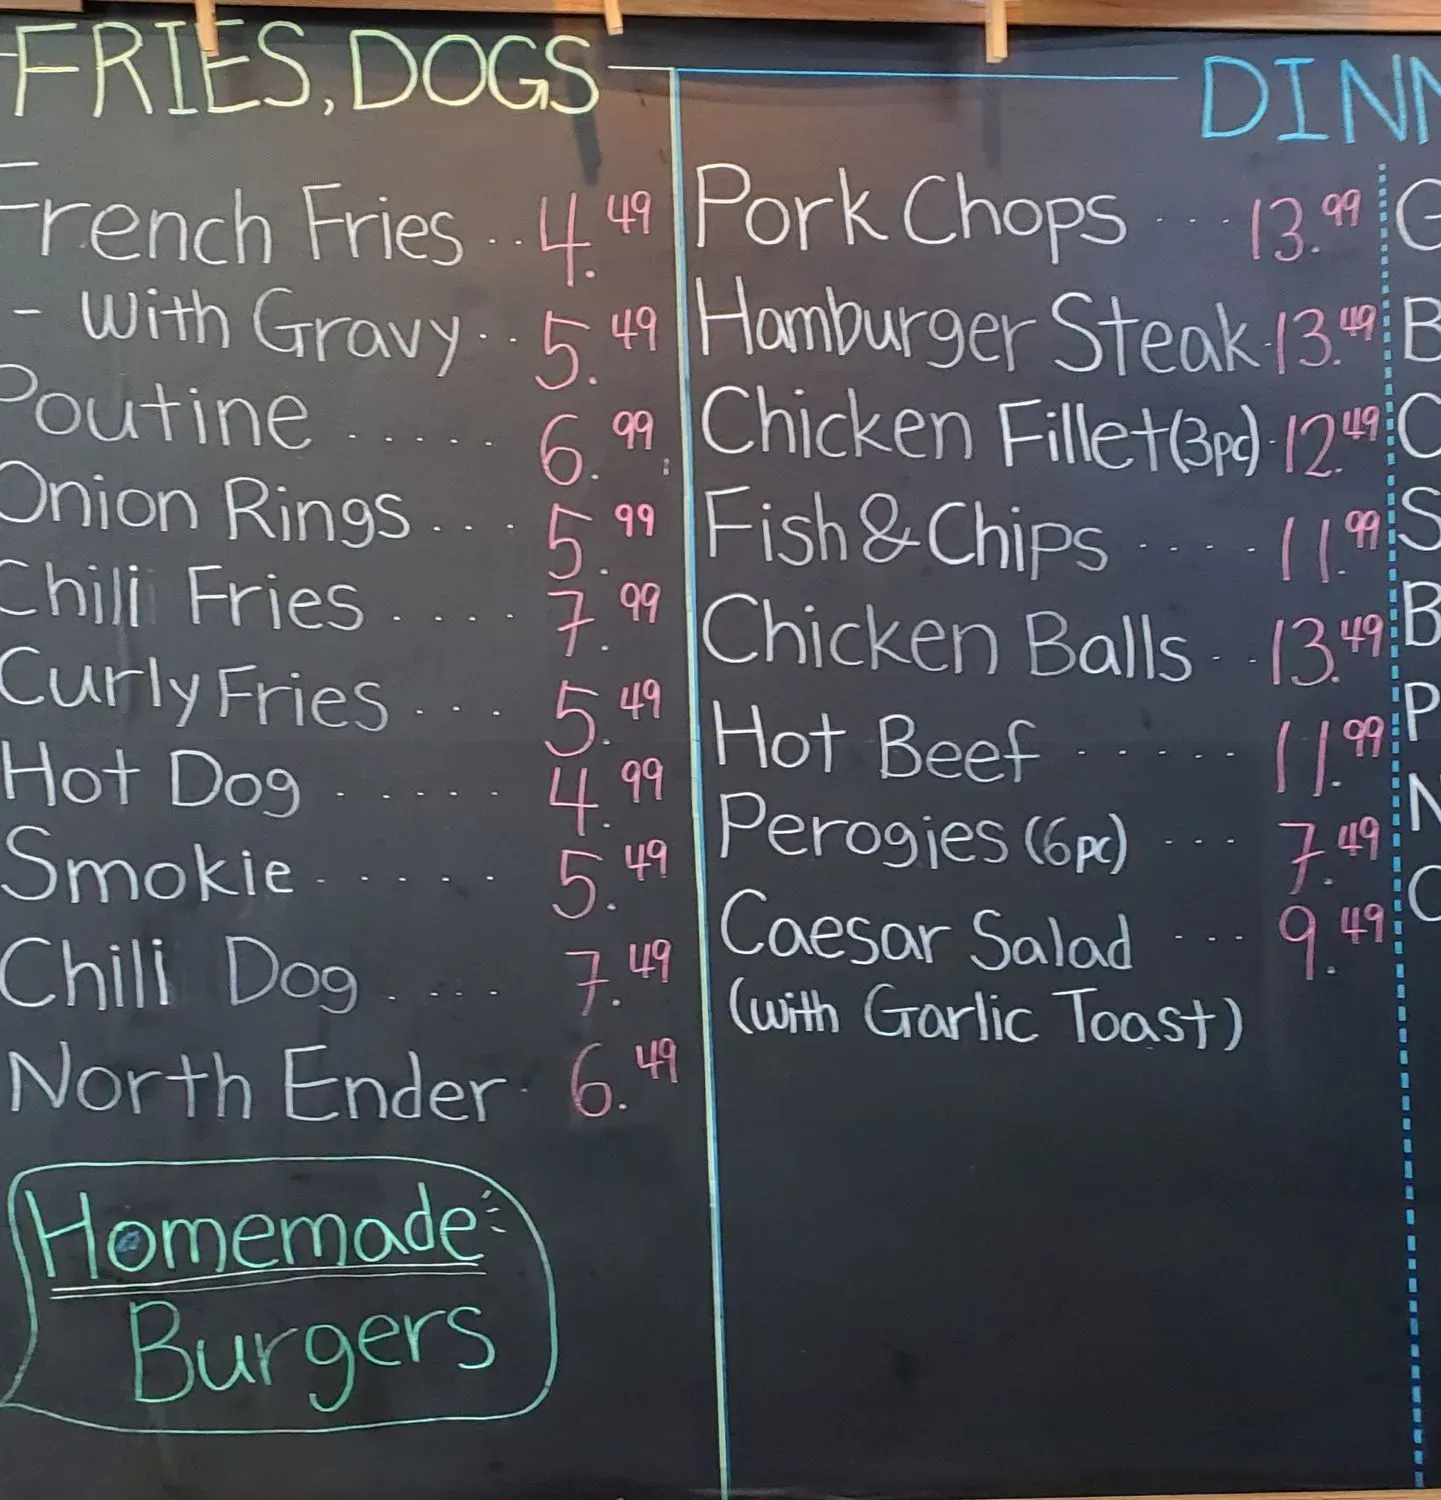 FRIES, DOGS
French Fries .. 4.49
- With Gravy .. 5.49
Poutine ..... 6.99
Onion Rings ... 5.99
Chili Fries .... 7.99
Curly Fries ... 5.49
Hot Dog ..... 4.99
Smokie ..... 5.49
Chili Dog .... 7.49
North Ender . 6.49
Homemade
Burgers
DINN
Pork Chops ... 13.99
Hamburger Steak . 13.49
Chicken Fillet (3pc) . 12.49
Fish & Chips .... 11.99
Chicken Balls .. 13.49
Hot Beef ..... 11.99
Perogies (6pc) ... 7.49
Caesar Salad ... 9.49
(with Garlic Toast)